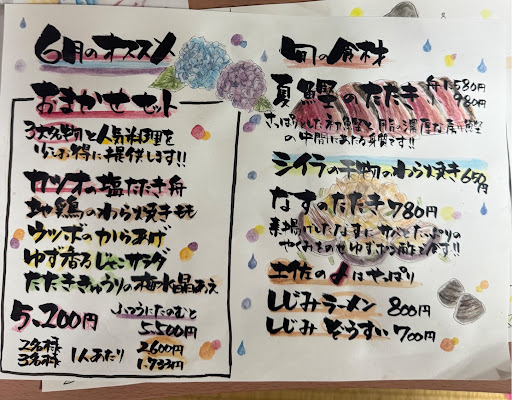 6月のオススメ
おまかせセット
3大名物と人気料理を
少しお得に提供します!!
カツオの塩たたき舟
地鶏のわら焼きもも
ウツボのからあげ
ゆず香るじゃこサラダ
たたききゅうりの梅水晶あえ
5,200円
ふつうにたのむと
5,500円
2名様
3名様
1人あたり
2,600円
1,733円
旬の食材
夏鰹のたたき
舟1,580円
980円
さっぱりとした初鰹と脂の濃厚な戻り鰹
の中間にあたる身質です!!
シイラの干物のわら焼き650円
なすのたたき780円
素揚げしたなすにサバとたっぷりの
やくみをのせゆずポン酢と合います!!
土佐の〆はやっぱり
しじみラーメン 800円
しじみぞうすい 700円